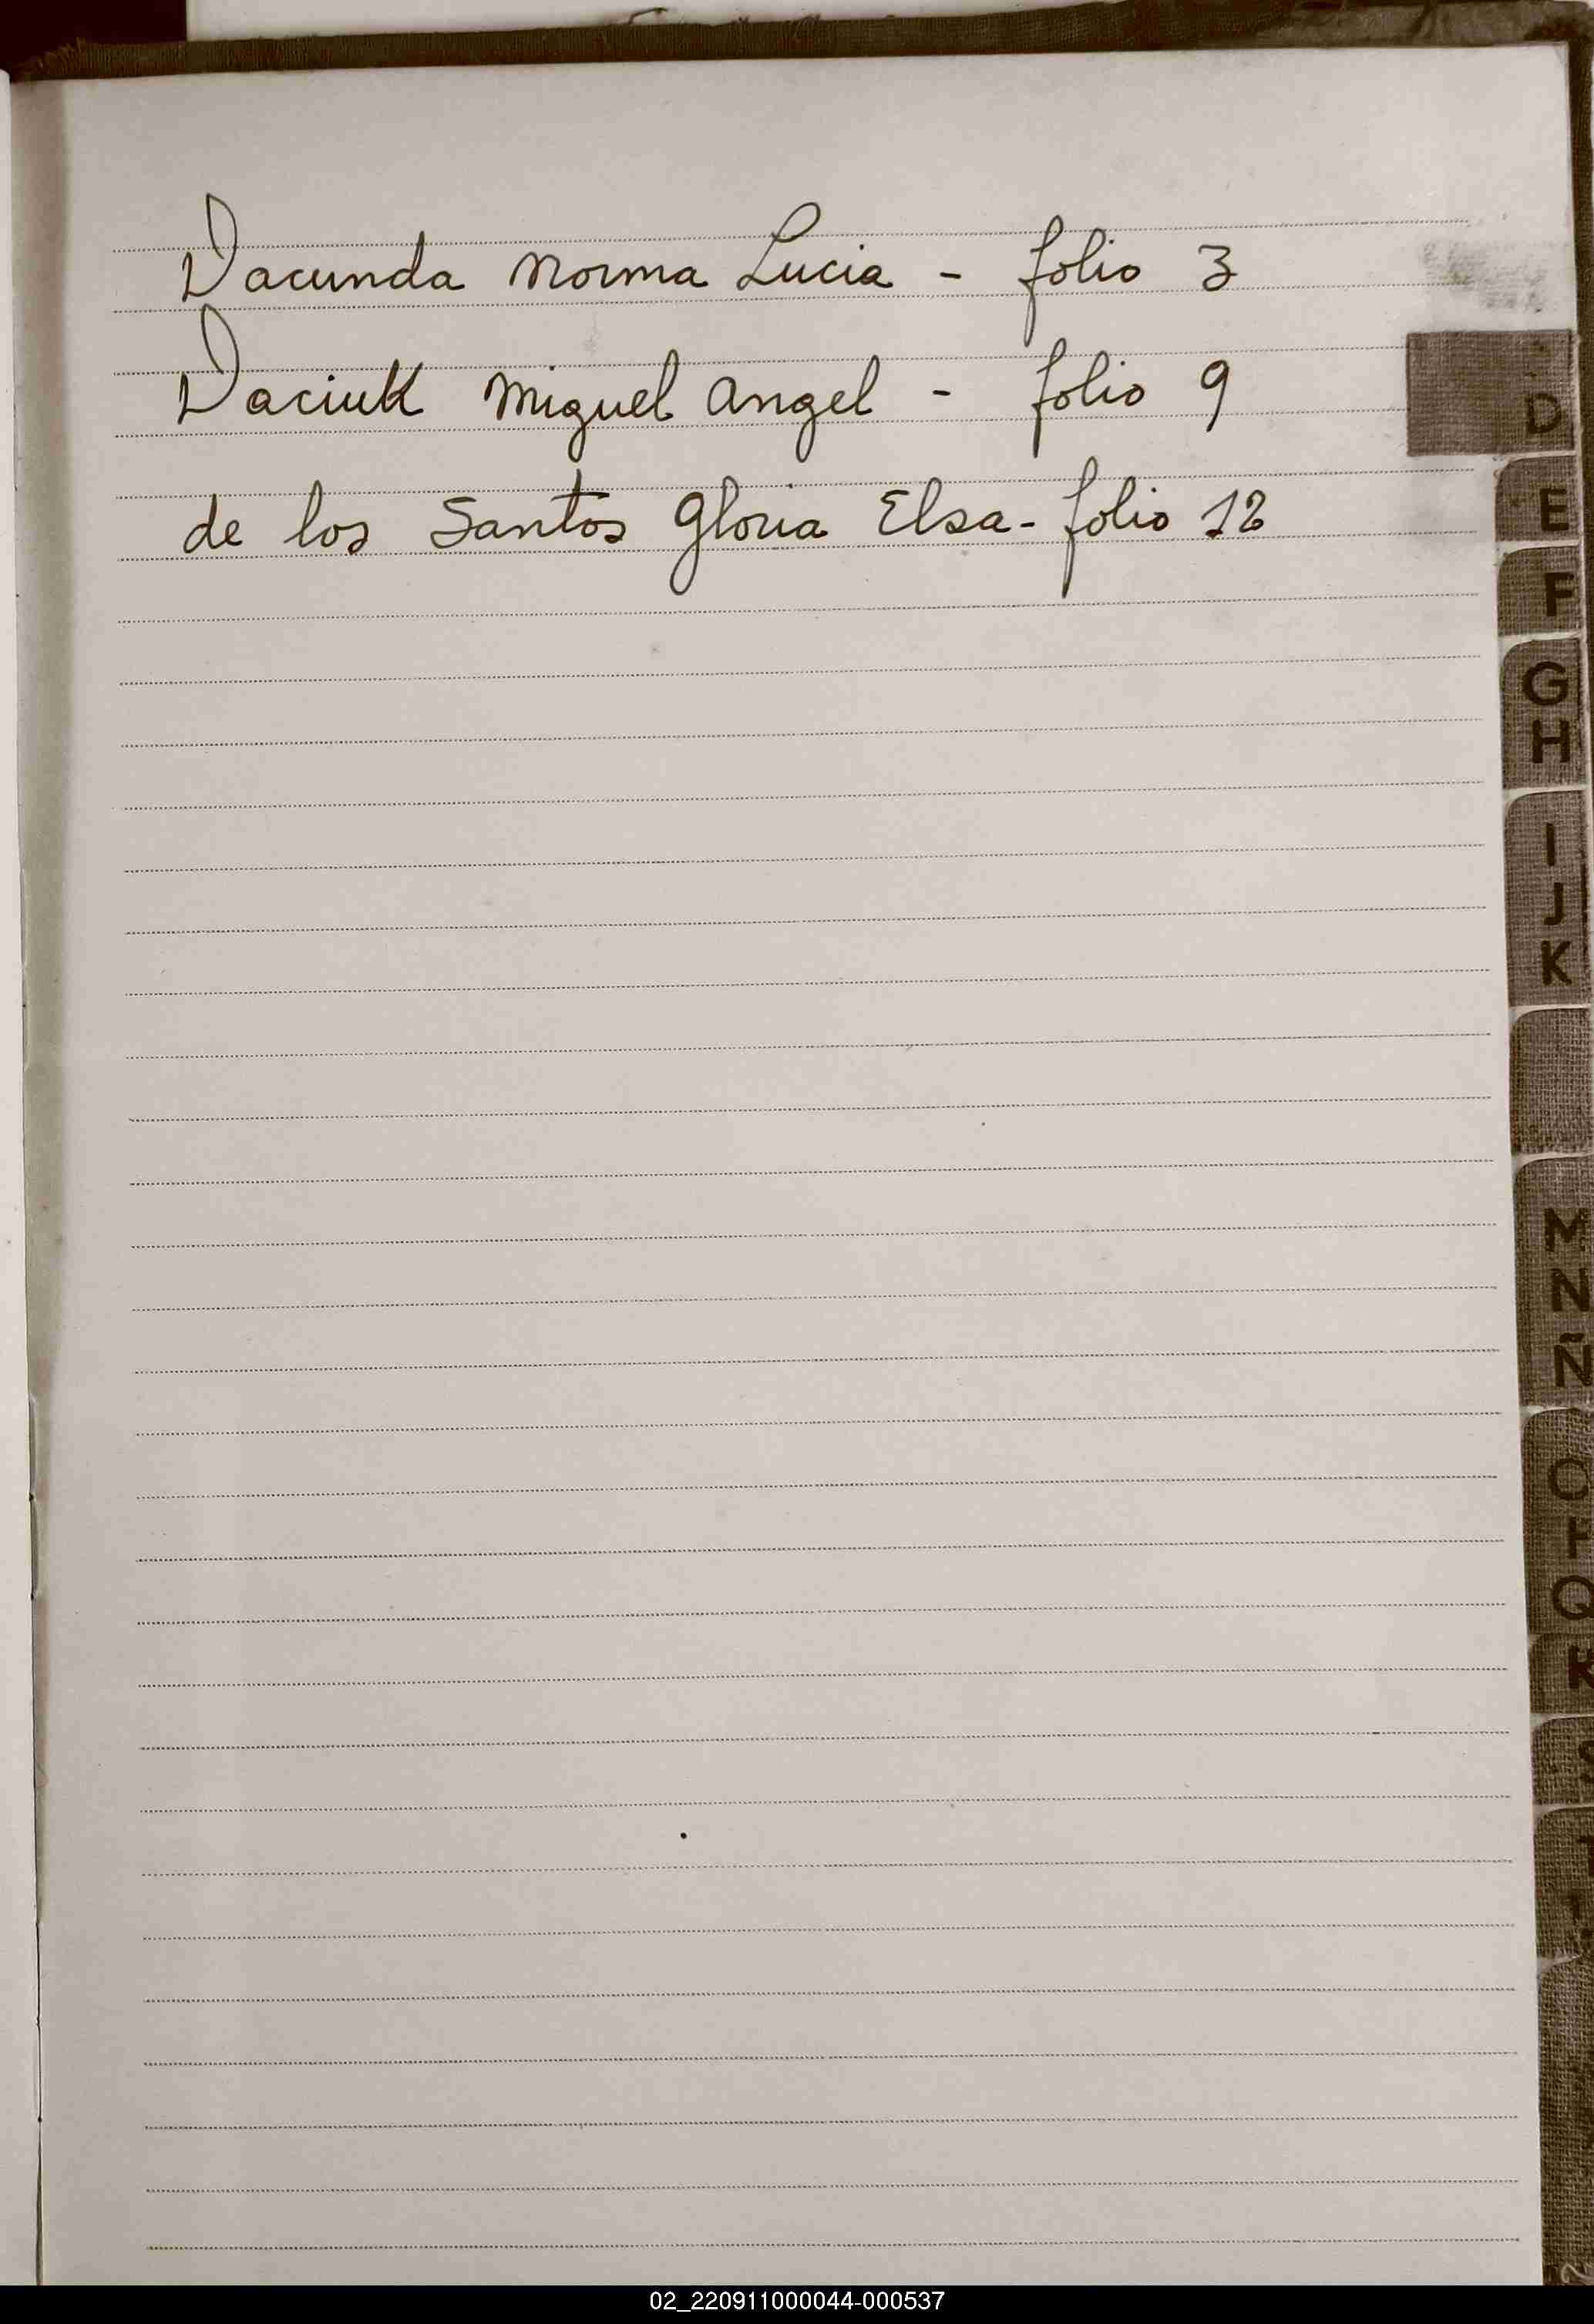 Dacunda Norma Lucia - folio 3
Daciuk Miguel Angel - folio 9
de los Santos Gloria Elsa - folio 12
D
E
F
G
H
I
J
K
M
N
Ñ
O
P
Q
R
S
02_220911000044-000537